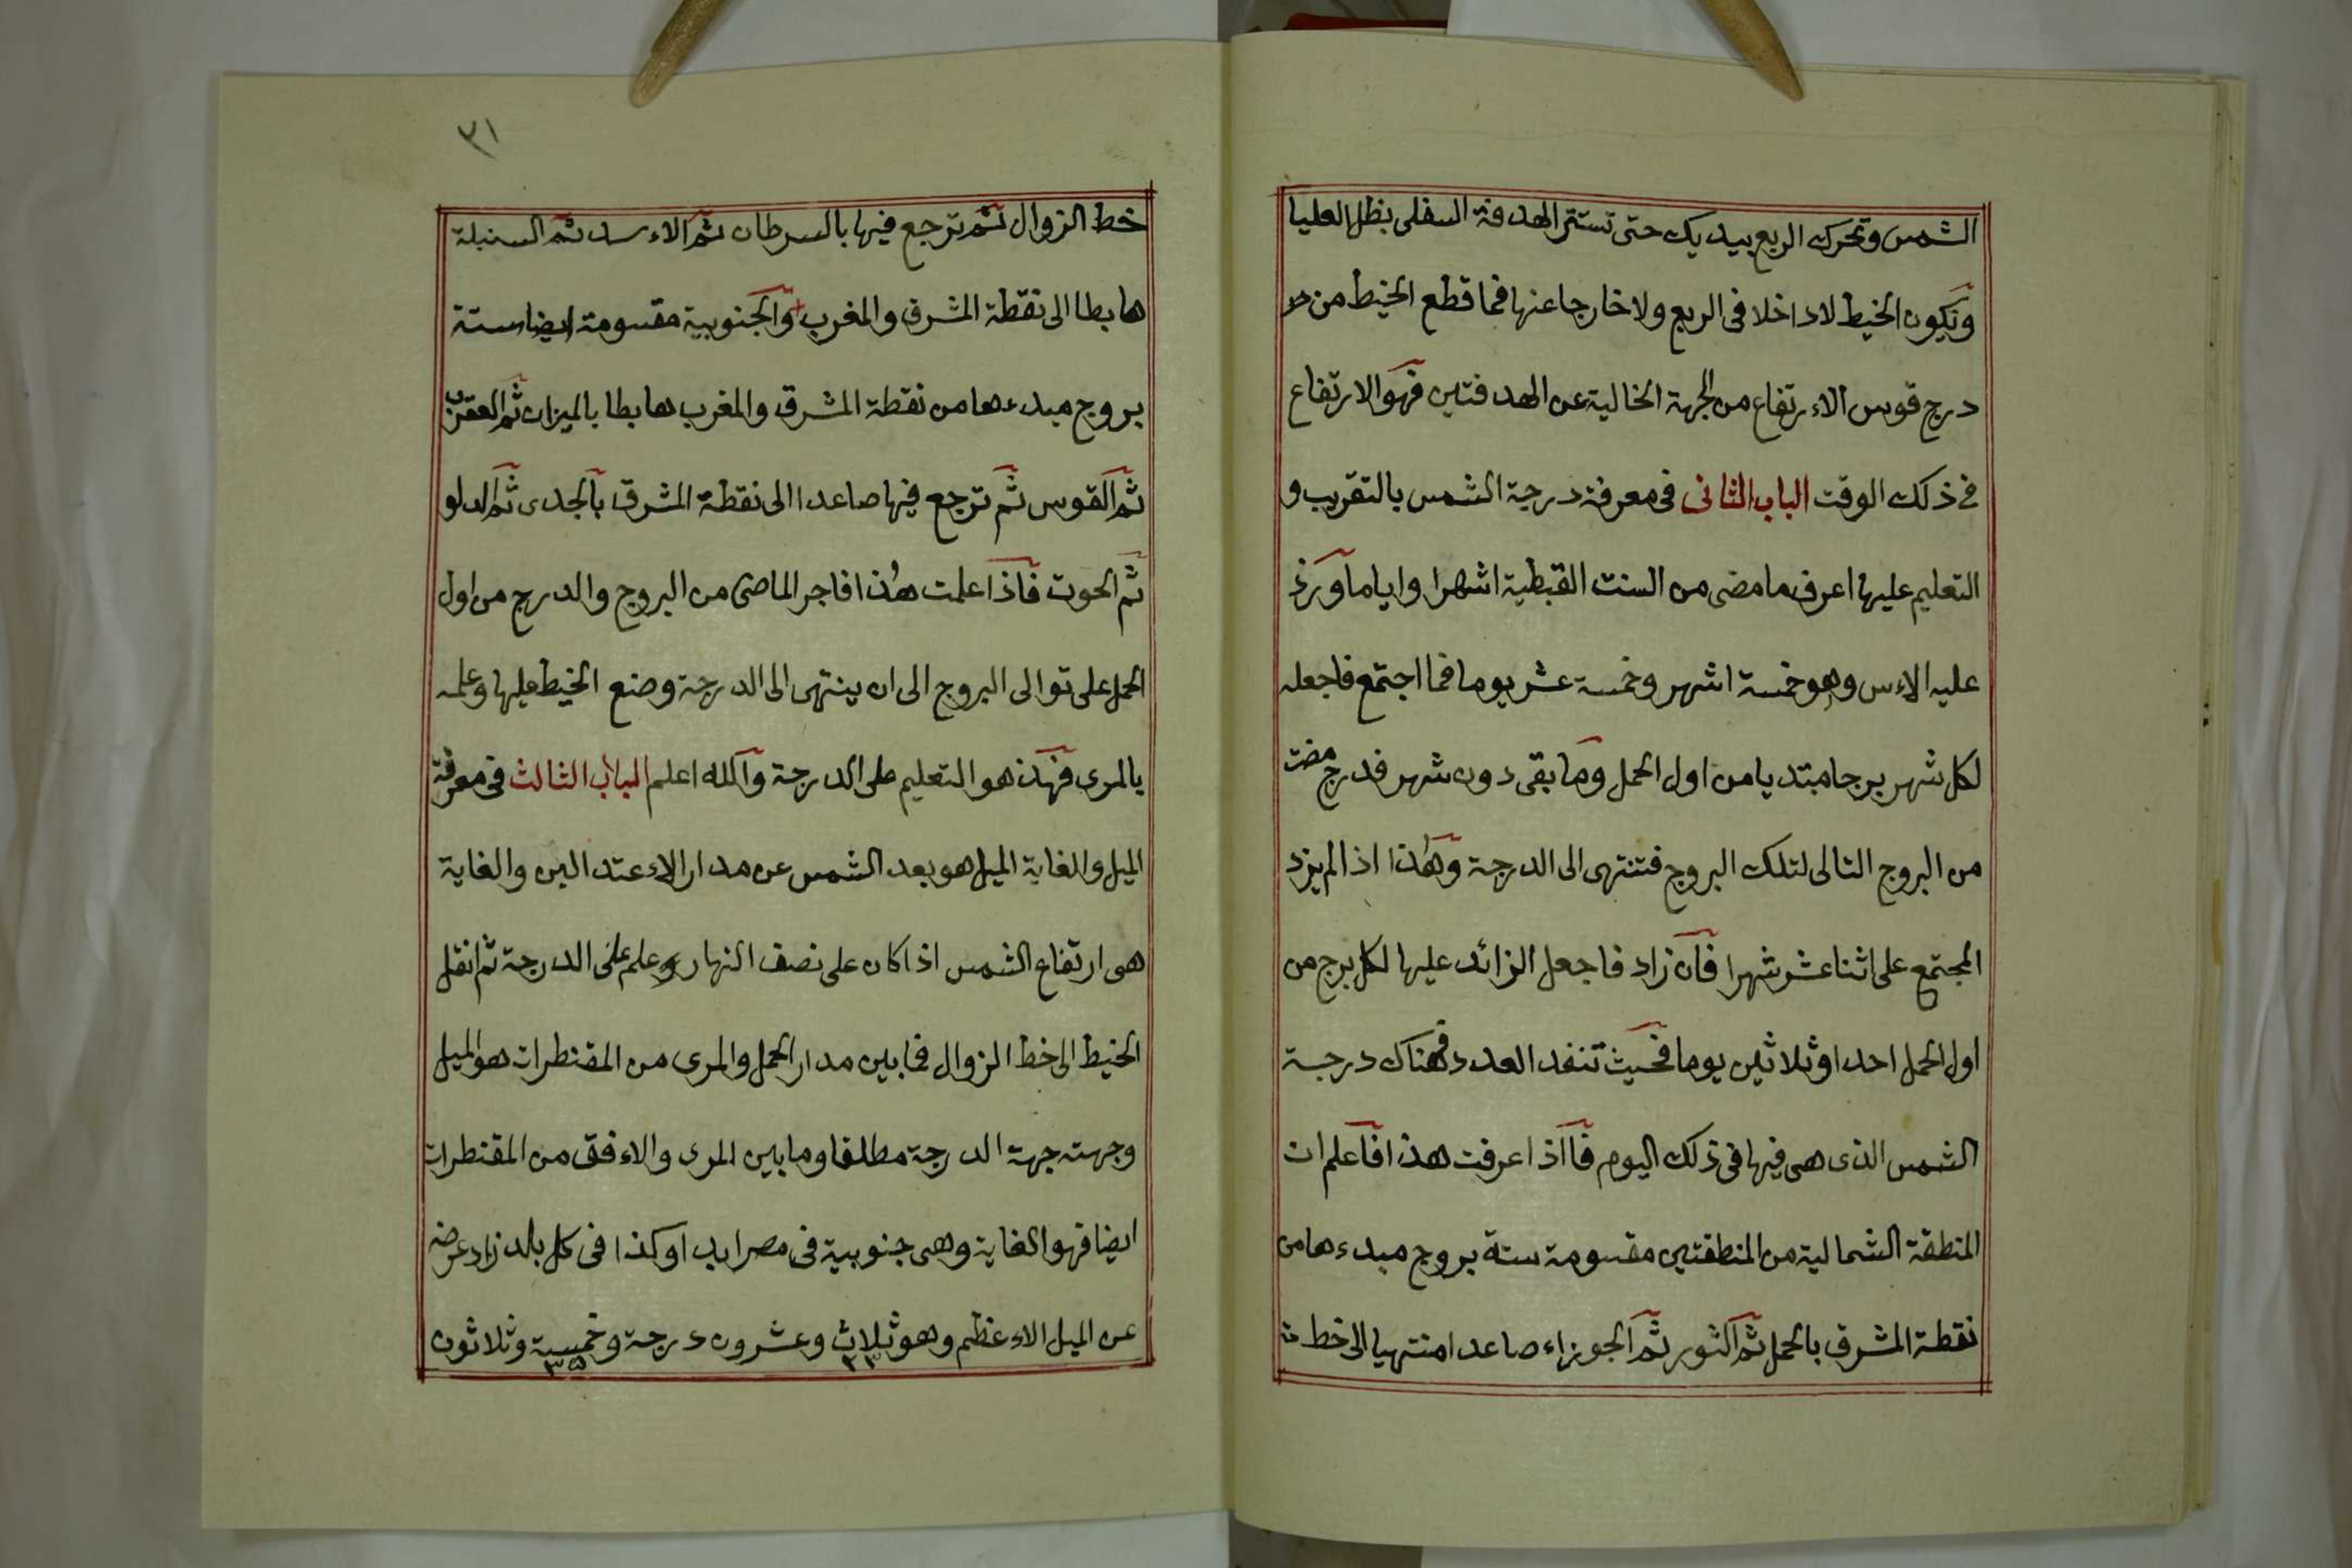 الشمس وتحرك الربع بيديك حتى تستتر الهدفة السفلى بظل العليا
ويكون الخيط لا داخلا فى الربع ولا خارجا عنها فما قطع الخيط من
درج قوس الاءرتفاع من الجهة الخالية عن الهدفتين فهو الارتفاع
فى ذلك الوقت الباب الثانى فى معرفة درجة الشمس بالتقريب و
التعليم عليها اعرف ما مضى من السنت القبطية اشهرا واياما وزد
عليه الاءس وهو خمسة اشهر وخمسة عشر يوما فما اجتمع فاجعله
لكل شهر برجا مبتديا من اول الحمل وما بقى دون شهر فدرج مضت
من البروج التالى لتلك البروج فتنتهى الى الدرجة وهذا اذا لم يزد
المجتمع على اثنا عشر شهرا فان زاد فاجعل الزائد عليها لكل برج من
اول الحمل احدا وثلاثين يوما فحيث تنفد العدد فهناك درجة
الشمس الذى هى فيها فى ذلك اليوم فااذا عرفت هذا فاعلم ان
المنطقة الشمالية من المنطقتين مقسومة ستة بروج مبدءها من
نقطة المشرق بالحمل ثم الثور ثم الجوزاء صاعدا منتهيا الى خط
٣١
خط الزوال ثم ترجع فيها بالسرطان ثم الاءسد ثم السنبلة
هابطا الى نقطة المشرق والمغرب والجنوبية مقسومة ايضا ستة
بروج مبدءها من نقطة المشرق والمغرب هابطا بالميزان ثم العقرب
ثم القوس ثم ترجع فيها صاعدا الى نقطة المشرق بالجدى ثم الدلو
ثم الحوت فاذا علمت هذا فاجر الماضى من البروج والدرج من اول
الحمل على توالى البروج الى ان ينتهى الى الدرجة وضع الخيط عليها وعلمه
بالمرى فهذ هو التعليم على الدرجة والله اعلم الباب الثالث فى معرفة
الميل والغاية الميل هو بعد الشمس عن مدار الاءعتدالين والغاية
هى ارتفاع الشمس اذا كان على نصف النهار وعلم على الدرجة ثم انقل
الخيط الى خط الزوال فما بين مدار الحمل والمرى من المقنطرات هو الميل
وجهته جهة الدرجة مطلقا وما بين المرى والاءفق من المقنطرات
ايضا فهو الغاية وهى جنوبية فى مصر ابدا وكذا فى كل بلد زاد عرضه
عن الميل الاءعظم وهو ثلاث وعشرون درجة وخمسة وثلاثون
٢٣ ٣٥